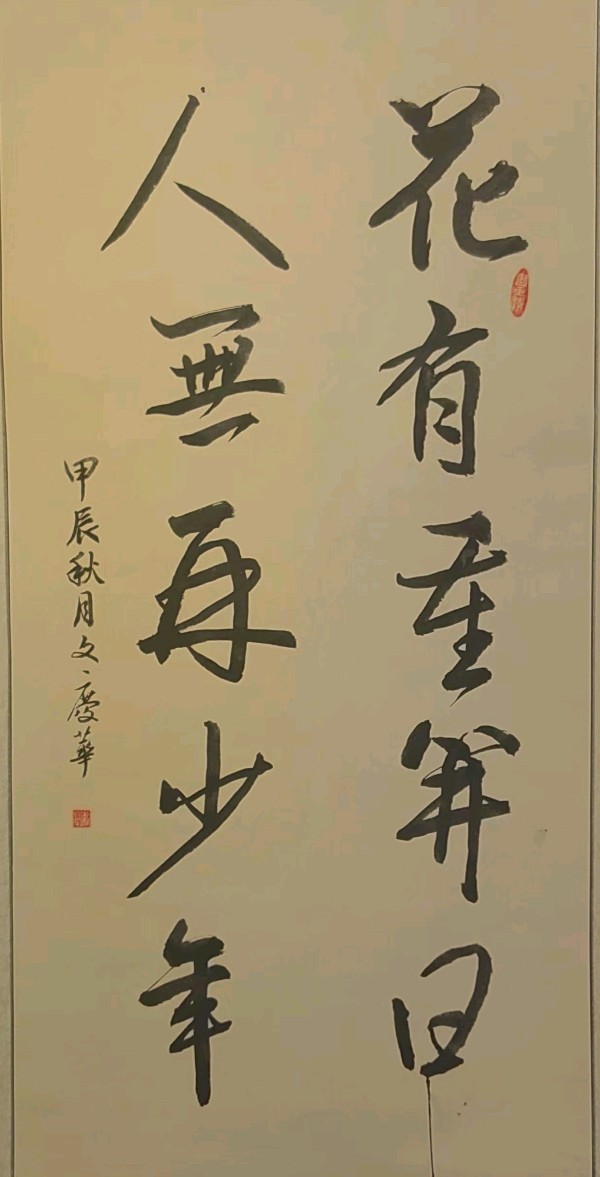 花有重開日
人無再少年
甲辰秋月文慶華